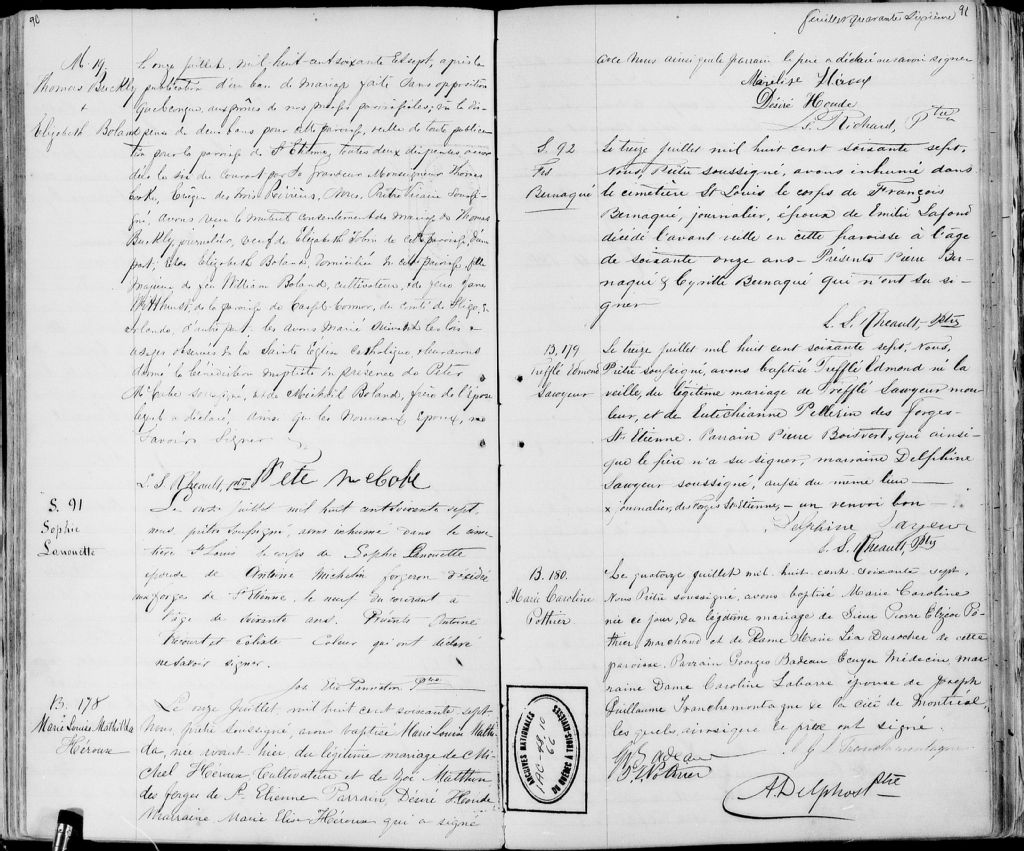 90
M. 19.
Thomas Buckly
+
Elizabeth Boland
Le onze juillet, mil huit cent soixante et sept, après la
publication d'un ban de mariage faite sans opposition
quelconque, aux prônes de nos messes paroissiales; vu la dis-
pense de deux bans pour cette paroisse, celle de toute publica-
tion pour la paroisse de St Etienne, toutes deux dispenses accor-
dées le six du courant par Sa Grandeur Monseigneur Thomas
Cooke, Evêque des Trois Rivières, Nous, Prêtre Vicaire soussi-
gné, avons reçu le mutuel consentement de mariage de Thomas
Buckly, journalier, veuf de Elizabeth de cette paroisse d'une
part; et de Elizabeth Boland, domiciliée en cette paroisse, fille
majeure de feu William Boland, cultivateur, et de feue Jane
de la paroisse de Castle-Connor, du comté de Sligo, en
Irlande, d'autre part: les avons mariés suivant les lois &
usages observés de la Sainte Eglise Catholique & leur avons
donné la bénédiction nuptiale en présence de Peter
McCabe soussigné, et de Michael Boland, frère de l'Epouse
ayant déclaré, ainsi que les Nouveaux Epoux, ne
savoir signer
L. S. Rheault, Ptre Pete McCabe
S. 91
Sophie
Lanouette
Le onze juillet mil huit cent soixante sept,
nous, prêtre soussigné, avons inhumé dans le cime-
tière St Louis le corps de Sophie Lanouette
épouse de Antoine Michelin forgeron décédée
aux forges de St Etienne, le neuf du courant à
l'âge de soixante ans. Présents Antoine
et Calixte qui ont déclaré
ne savoir signer.
Jos Elie Panneton Ptre
B. 178
Marie Louise Mathilda
Héroux
Le onze juillet, mil huit cent soixante sept
Nous, prêtre soussigné, avons baptisé Marie Louise Mathil-
da, née avant hier du légitime mariage de Mi-
chel Héroux, Cultivateur et de Zoé Matthieu
des forges de St Etienne Parrain, Désiré Houde
Marraine, Marie Elise Héroux qui a signé
feuillet quarante sixième 91
avec Nous ainsi que le parrain le père a déclaré ne savoir signer
Marélise Héroux
Désiré Houde
Richard, Ptre
S. 92
Frs
Bernaqué
Le treize juillet mil huit cent soixante sept,
Nous, Prêtre soussigné, avons inhumé dans
le cimetière St Louis le corps de François
Bernaqué, journalier, époux de Emilie Lafond
décédé l'avant veille en cette paroisse à l'âge
de soixante onze ans - Présents Pierre Ber-
naqué & Cyrille Bernaqué qui n'ont su si-
gner
L. S. Rheault, Ptre
B. 179
Trefflé Edmond
Sawyeur
Le treize juillet mil huit cent soixante sept, Nous,
Prêtre soussigné, avons baptisé Trefflé Edmond né la
veille, du légitime mariage de Trefflé Sawyeur mou-
leur, et de Eutichianne Pellerin des forges
St. Etienne. Parrain Pierre Boisvert, x qui ainsi
que le père n'a su signer, marraine Delphine
Sawyeur soussignée, aussi du même lieu
x journalier, des forges St. Etienne, - un renvoi bon -
Delphine Sayeur
L. S. Rheault, Ptre
B. 180.
Marie Caroline
Pothier
Le quatorze juillet mil huit cent soixante sept,
Nous Prêtre soussigné, avons baptisé Marie Caroline
née ce jour, du légitime mariage de Sieur Pierre Elzéar Po-
thier marchand et de Dame Marie Léa Durocher de cette
paroisse. Parrain Georges Badeau Ecuyer Médecin, mar-
raine Dame Caroline Labarre épouse de Joseph
Guillaume Tranchemontagne de la cité de Montréal,
lesquels ainsi que le père ont signé.
G. Badeau
Tranchemontagne
P. E. Pothier
A. Delphos Ptre
ARCHIVES NATIONALES
DU QUÉBEC À TROIS-RIVIÈRES